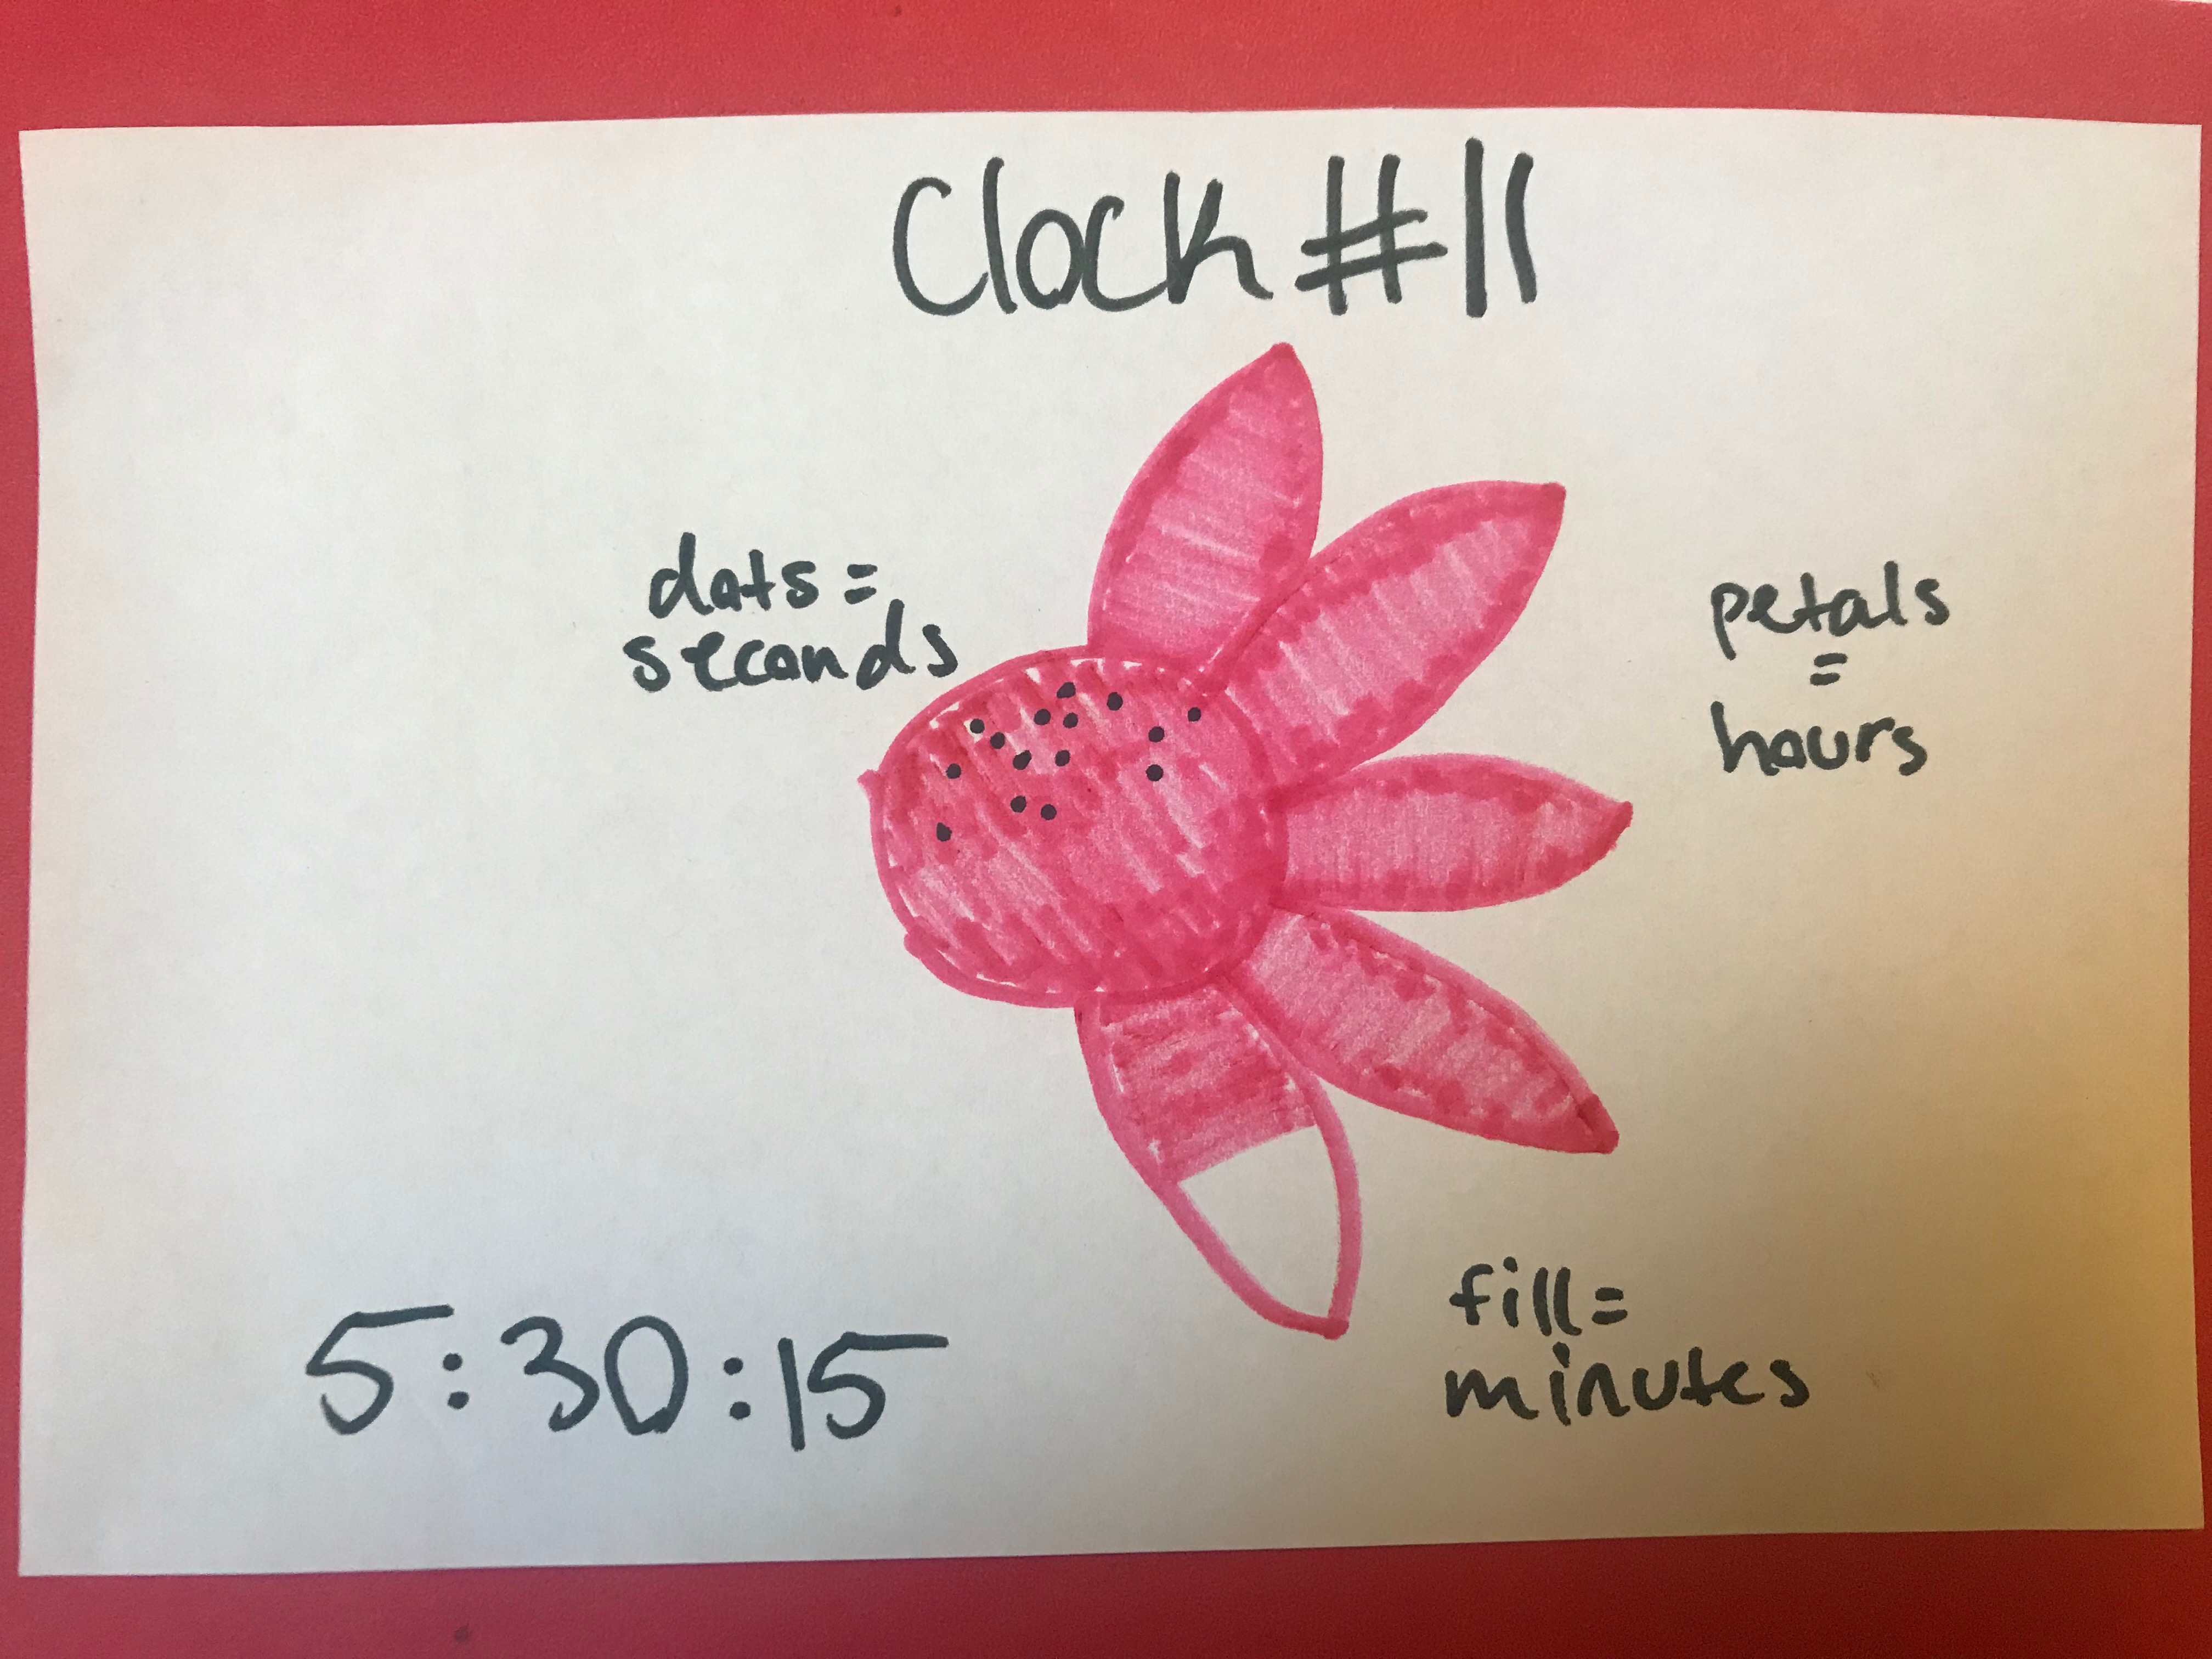 Clock #11
dots =
seconds
petals
=
hours
fill=
minutes
5:30:15